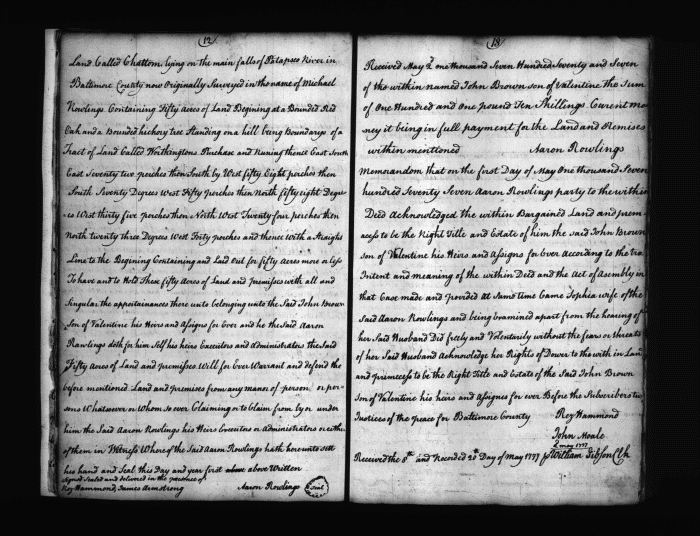 12
Land Called Chattom lying on the main falls of Patapsco River in
Baltimore County now Originally Surveyed in the name of Michael
Rowlings Containing Fifty Acres of Land Begining at a Bounded Red
Oak and a Bounded hickory tree Standing on a hill being Boundarys of a
Tract of Land Called Worthingtons Purchase and Runing thence East South
East Seventy two perches then South by West Fifty Eight perches then
South Seventy Degrees West Fifty Perches then North fifty eight Degre-
-es West thirty five perches then North West Twenty four perches then
North twenty three Degrees West Forty perches and thence With a Straight
Line to the Begining Containing and Laid Out for fifty Acres more or less
To have and to Hold These fifty Acres of Land and premisses with all and
Singular the appertainances there unto belonging unto the Said John Brown
Son of Valentine his Heirs and Assigns for Ever and he the Said Aaron
Rawlings doth for him Self his heirs Executors and Administrators the Said
Fifty Acres of Land and premisses Will for Ever Warrant and defend the
before mentioned Land and premises from any maner of person or per-
sons Whatsoever or Whom so ever Claiming or to Claim from by or under
him the Said Aaron Rowlings his Heirs Executors or Administrators or either
of them in Witness Whereof the Said Aaron Rowlings hath hereunto set
his hand and Seal this Day and year first above Written
Signed Sealed and delivered in the presence of
Rez Hammond, James Armstrong Aaron Rowlings Seal
13
Received May 2d one thousand Seven Hundred Seventy and Seven
of the within named John Brown son of Valentine The Sum
of One Hundred and One pound Ten Shillings Curent mo
ney it being in full payment for the Land and Remises
within mentioned Aaron Rowlings
Memorandom that on the first Day of May One thousand Seven
hundred Seventy Seven Aaron Rowlings party to the within
Deed Acknowledged the within Bargained Land and prem-
acess to be the Right Title and Estate of him the said John Brown
son of Valentine his Heirs and Assigns for Ever According to the true
Intent and meaning of the within Deed and the Act of Assembly in
that Case made and provided At Same time Came Sophia wife of the
Said Aaron Rowlings and being Examined apart from the hearing of
her Said Husband Did freely and Volentarily without the fears or threats
of her Said Husband Acknowledge her Rights of Dower to the with in Land
and primecess to be the Right Title and Estate of the Said John Brown
Son of Valentine his heirs and Assignes for ever Before the Subscribers two
Justices of the peace for Baltimore County Rez Hammond
John Moale
2 may 1777
Received the 8th and Recorded 20th Day of may 1777 p William Gibson Clk